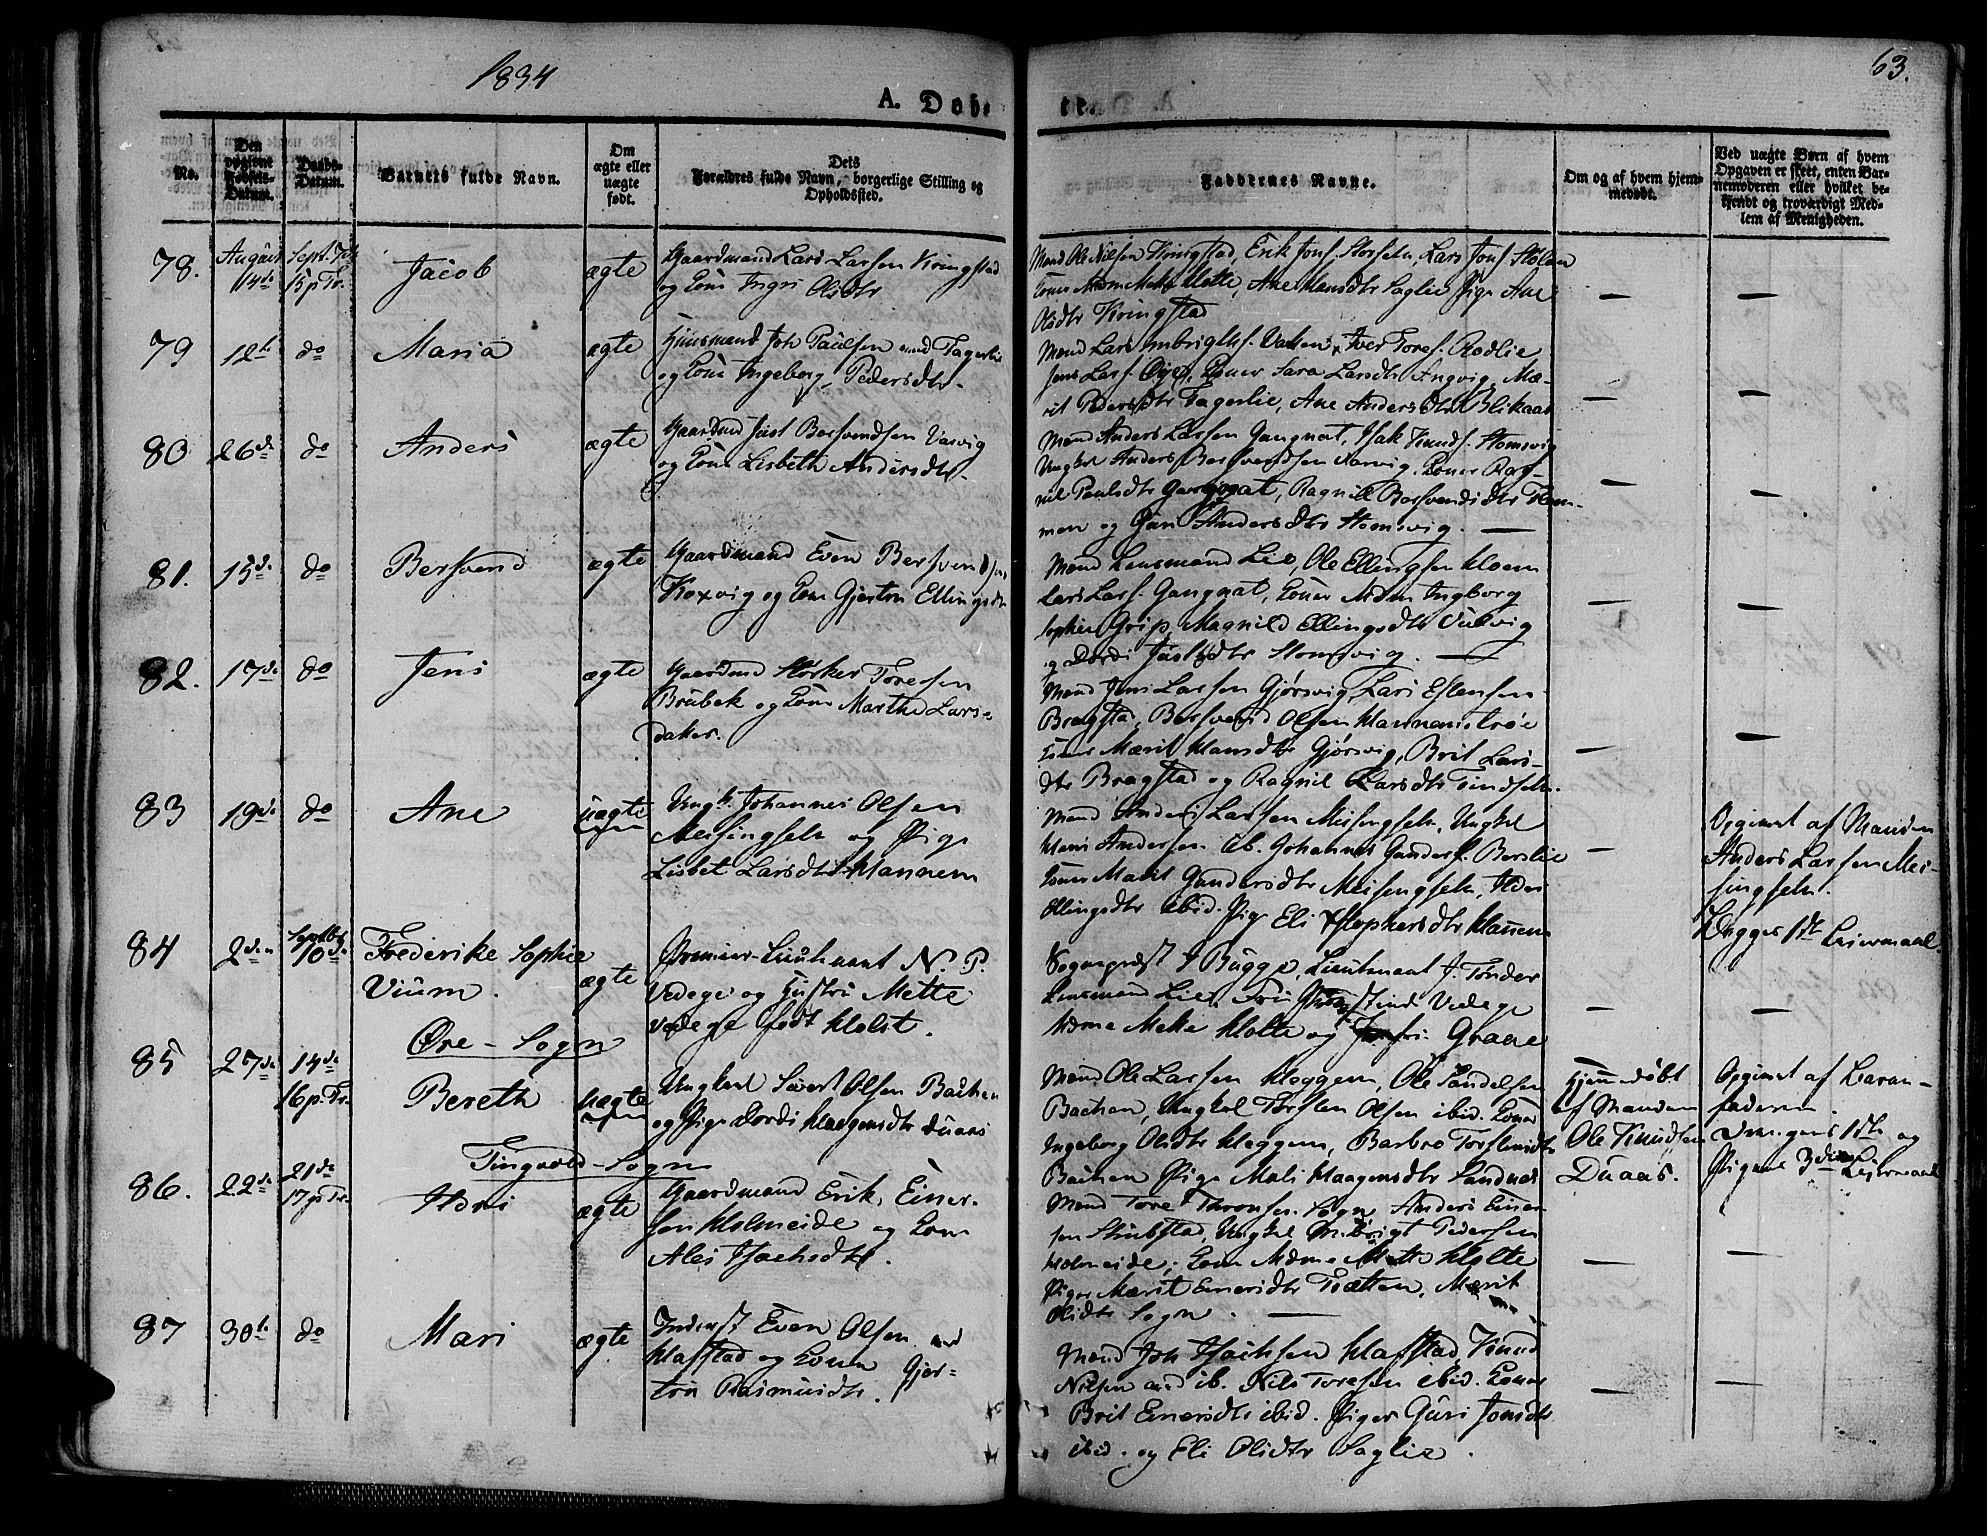 1834
63.
A. Døb-
te.
No.
Den opgivne Fødsels-Datum.
Daabs-Datum.
Barnets fulde Navn.
Om ægte eller uægte født.
Dets Forældres fulde Navn, borgerlige Stilling og Opholdssted.
Faddernes Navne.
Om og af hvem hjemmedøbt.
Ved uægte Børn af hvem Opgaven er skeet, enten Barnemoderen eller hvilket bekjendt og troværdigt Medlem af Menigheden.
78. August 14de Sept. 7de 15 p. Tr. Jacob ægte
Gaardmand Lars Larsen Kringstad
og Kone Ingri Olsdtr
Mænd Ole Nilsen Kringstad, Erik Jons. Storseln, Lars Jons. Stolen
Koner Mdm Mette Holte, Ane Hansdtr Saglie Pige Ane
Olsdtr Kringstad
79 12te do Maria ægte
Huusmand Joh Paulsen und Fagerlie
og Kone Ingeborg Pedersdtr.
Mænd Lars Ingbrigts. Vaagen, Iver Tores. Rødlie
Jens Lars. Øye, Koner Sara Larsdtr Angvig, Mæ-
rit Pedersdtr Fagerlie, Ane Andersdtr Blikaas
80 26de do Anders ægte
Gaardmd Just Bersvendsen Varvig
og Kone Lisbeth Andersdtr.
Mænd Anders Larsen Gangnat, Isak Knuds. Stomsvig
Ungkl Anders Bersvendsen Varvig. Koner Rag-
nil Paulsdtr Gangnat, Ragnil Bersvendsdtr Flem-
men og Guri Andersdtr Stomsvig.
81. 15de do Bersvend ægte
Gaardmand Even Bersvendsen
Koxvig og Kone Gjertru Ellingsdtr
Mænd Lensmand Lie, Ole Ellingsen Hoem
Lars Lars. Gangnat, Koner Mdm Ingborg
Sophie Grip, Magnild Ellingsdtr Vulvig
og Dordi Justsdtr Stomsvig.
82. 17de do Jens ægte
Gaardmd Størker Toresen
Brubek og Kone Marthe Lars-
datter.
Mænd Jens Larsen Gjørsvig, Lars Estensen
Bragstad, Bersvend Olsen Hannemstrøe
Koner Mærit Hansdtr Gjørsvig, Brit Lars-
dtr Bragstad og Ragnil Larsdtr Tindseln.
83 19de do Ane uægte
Ungk. Johannes Olsen
Meisingseln og Pige
Lisbet Larsdtr Hannem
Mænd Anders Larsen Meisingseln, Ungkl
Hans Andersen ib. Johannes Gunders. Berslie
Koner Marit Gundersdtr Meisingseln, Ildri
Ellingsdtr ibid. Pige Eli Stophersdtr Hannem
Opgivet af Manden
Anders Larsen Mei-
singseln.
Begges 1ste Leiermaal.
84 2den Septbr 10de Frederike Sophie
Vium. ægte
Premier-Lieutenant N. P.
Vedege og Hustru Mette
Vedege født Holst.
Sognepræst J Bugge, Lieutenant J. Tønder
Lensmand Lie, Frue Vedege
Mdme Mette Holte og Jomfru Graae
Øre-Sogn
85 27de 14de 16 p. Tr. Bereth uægte
Ungkarl Sivert Olsen Bachen
og Pige Dordi Haagensdtr Duaas
Mænd Ole Larsen Heggem, Ole Sandelsen
Bachen, Ungkl Torsten Olsen ibid. Koner
Ingeborg Olsdtr Heggem, Barbro Torstensdtr
Bachen Pige Mali Haagensdtr Sandnes
Hjemmedøbt
af Manden
Ole Knudsen
Duaas.
Opgivet af Barne-
faderen.
Drengens 1ste og
Pigens 3die Leiermaal
Tingvold-Sogn
86. 22de 21de 17 p. Tr. Ildri ægte
Gaardmand Erik Einer-
sen Holmeide og Kone
Ales Isachsdtr.
Mænd Tore Thronsen Sogn, Anders Einer-
sen Stubstad, Ungkl Pedersen
Holmeide, Kone Mdme Mette Holte
Piger Mærit Einersdtr Tratten, Mærit
Olsdtr Sogn.
87 30te do Mari ægte
Inderst Even Olsen und
Hafstad og Kone Gjer-
tru Rasmusdtr.
Mænd Joh Isachsen Hafstad, Knud
Nilsen und ib. Nils Toresen ibid. Koner
Brit Einersdtr ibid. Piger Guri Jonsdtr
ibid. og Eli Olsdtr Saglie.